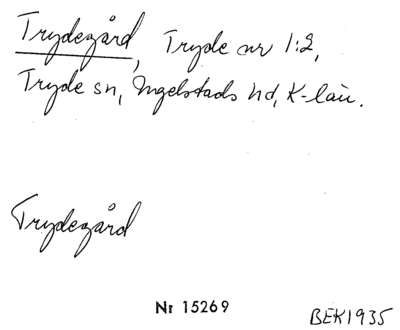 Trydegård, Tryde nr 1:2,
Tryde sn, Ingelstads hd, K-län.
Trydegård
Nr 15269
BEK1935